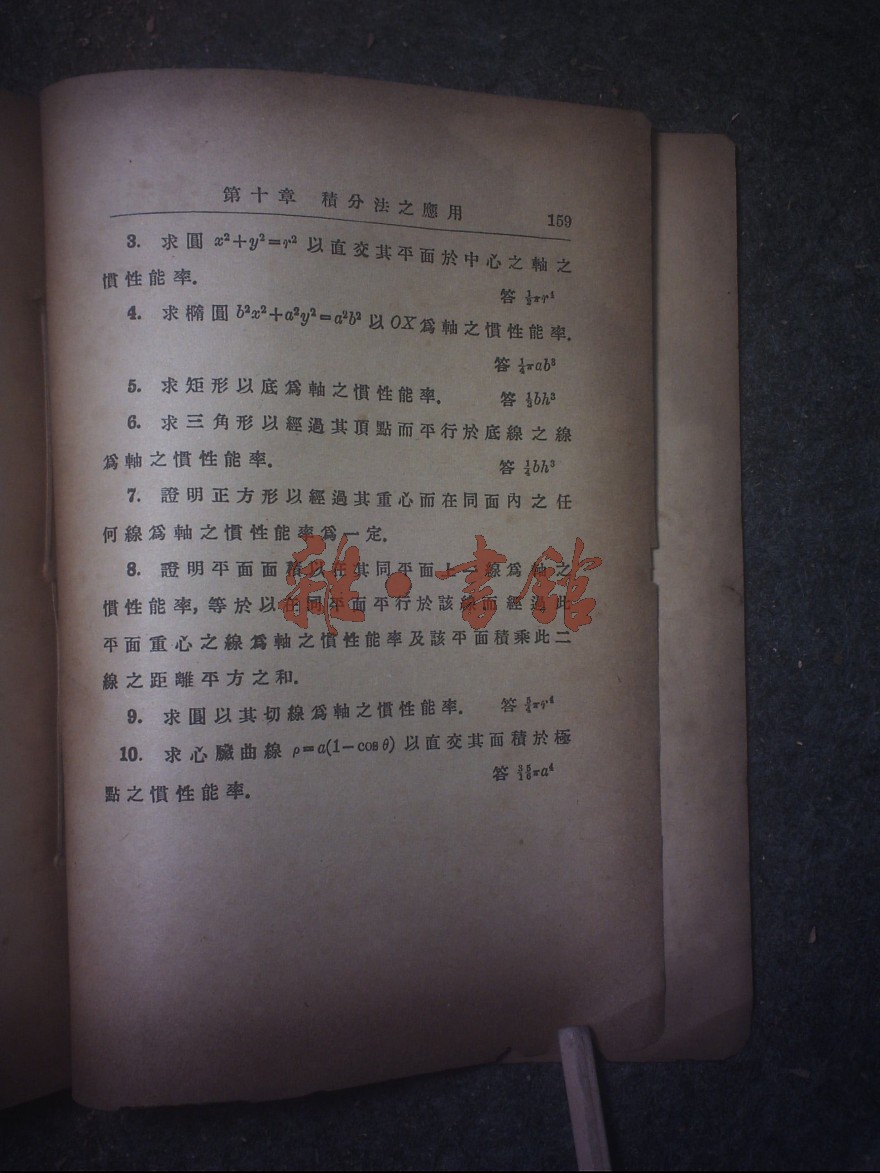 第十章 積分法之應用 159
3. 求圓 x²+y²=r² 以直交其平面於中心之軸之
慣性能率. 答 ½πr⁴
4. 求橢圓 b²x²+a²y²=a²b² 以OX爲軸之慣性能率.
答 ¼πab³
5. 求矩形以底爲軸之慣性能率. 答 ⅓bh³
6. 求三角形以經過其頂點而平行於底線之線
爲軸之慣性能率. 答 ¼bh³
7. 證明正方形以經過其重心而在同面內之任
何線爲軸之慣性能率爲一定.
8. 證明平面面積以在其同平面上一線爲軸之
慣性能率, 等於以在同平面平行於該線而經過此
平面重心之線爲軸之慣性能率及該平面積乘此二
線之距離平方之和.
9. 求圓以其切線爲軸之慣性能率. 答 5/4πr⁴
10. 求心臟曲線 ρ=a(1−cos θ) 以直交其面積於極
點之慣性能率. 答 35/16πa⁴
雜·書館